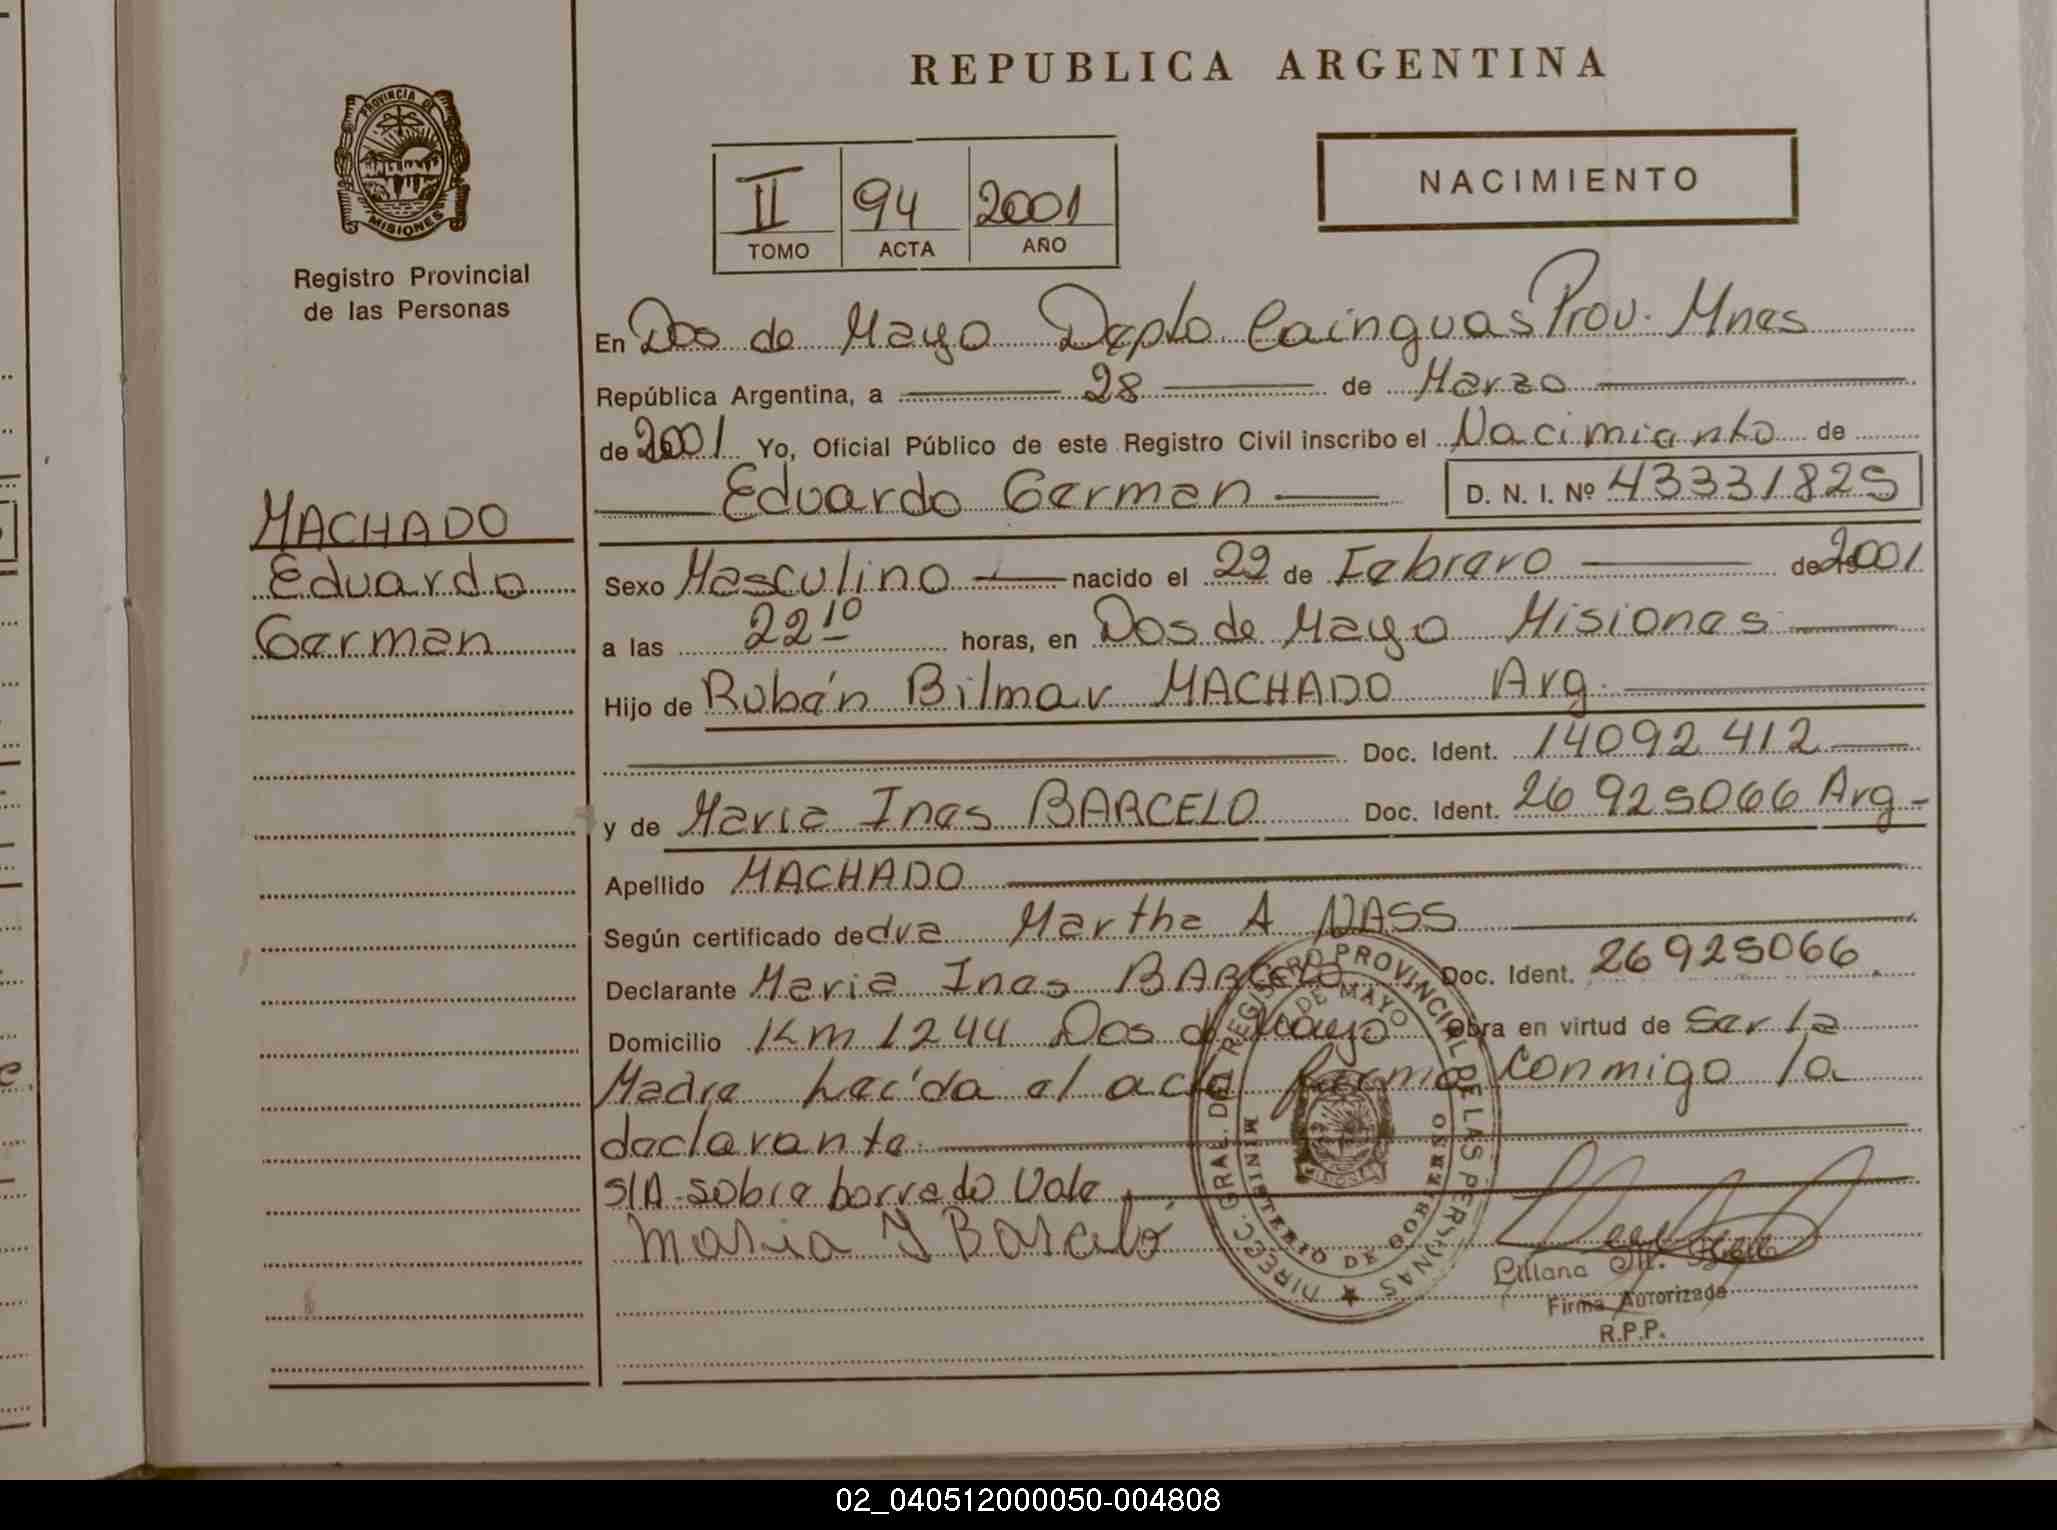 REPUBLICA ARGENTINA
PROVINCIA DE
MISIONES
Registro Provincial
de las Personas
II 94 2001
TOMO ACTA AÑO
NACIMIENTO
En Dos de Mayo Depto Cainguas Prov. Mnes
República Argentina, a 28 de Marzo
de 2001 Yo, Oficial Público de este Registro Civil inscribo el Nacimiento de
Eduardo German D. N. I. Nº 43331825
MACHADO
Eduardo
German
Sexo Masculino nacido el 22 de Febrero de 2001
a las 22 10 horas, en Dos de Mayo Misiones
Hijo de Rubén Bilmar MACHADO Arg.
Doc. Ident. 14092412
y de Maria Ines BARCELO Doc. Ident. 26925066 Arg-
Apellido MACHADO
Según certificado de dra Martha A NASS
Declarante Maria Ines BARCELO Doc. Ident. 26925066
Domicilio Km 1244 Dos de Mayo Obra en virtud de Ser la
Madre Leida el acta firma conmigo la
declarante.
S/A sobre borrado Vale
Maria Y Barceló
DIRECC. GRAL. DEL REGISTRO PROVINCIAL DE LAS PERSONAS
DE MAYO
MINISTERIO DE GOBIERNO
Liliana M.
Firma Autorizada
R.P.P.
02_040512000050-004808